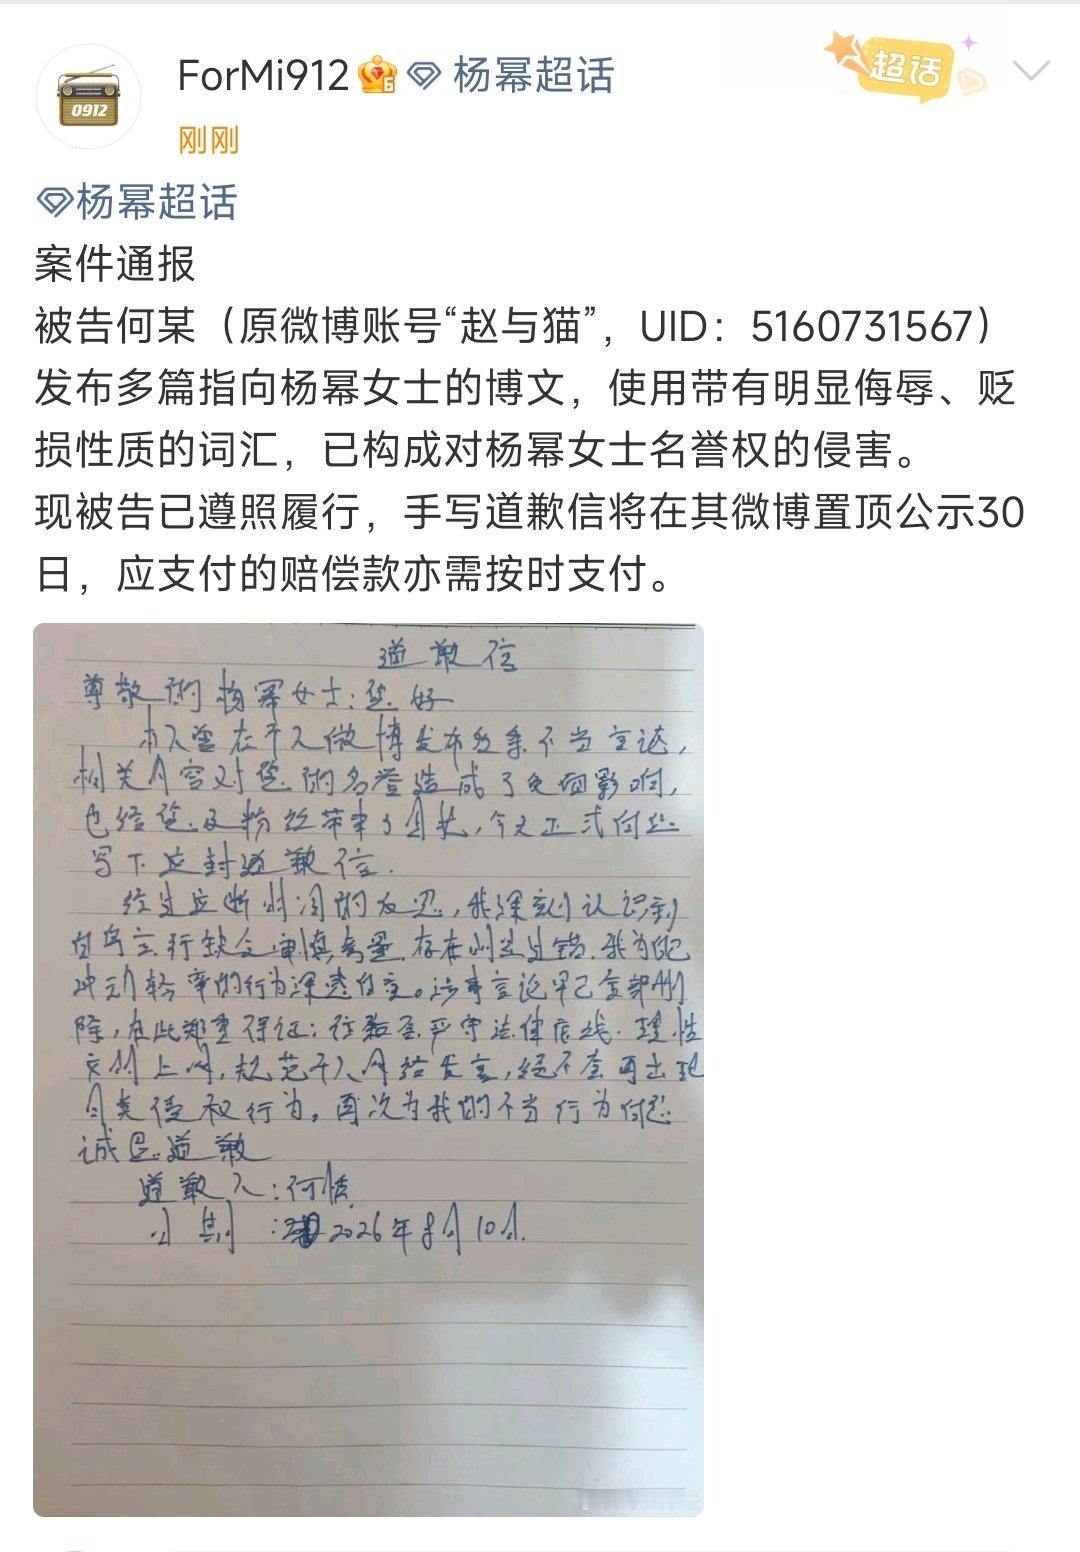 ForMi912 杨幂超话
超话
0912
刚刚
杨幂超话
案件通报
被告何某（原微博账号“赵与猫”，UID：5160731567）
发布多篇指向杨幂女士的博文，使用带有明显侮辱、贬
损性质的词汇，已构成对杨幂女士名誉权的侵害。
现被告已遵照履行，手写道歉信将在其微博置顶公示30
日，应支付的赔偿款亦需按时支付。
道歉信
尊敬的杨幂女士：您好
本人曾在个人微博发布多条不当言论，
相关内容对您的名誉造成了负面影响，
也给您及粉丝带来了困扰，今天正式向您
写下这封道歉信.
经过这断时间的反思，我深刻认识到
自身言行缺乏审慎考量，存在明显过错.我为自己
冲动轻率的行为深感自责。涉事言论早已全部删
除，在此郑重保证：往后会严守法律底线.理性
文明上网，规范个人网络发言，绝不会再出现
同类侵权行为，再次为我的不当行为向您
诚恳道歉
道歉人：何
日期：2026年8月10日.